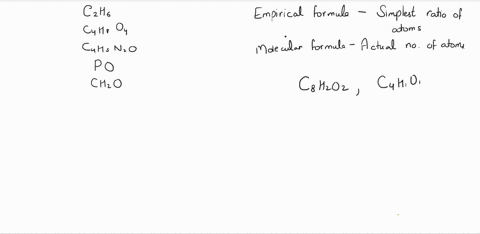 C2H6
C4H8O4
C4H5N2O
PO
CH2O
Empirical formula – Simplest ratio of atoms
Molecular formula – Actual no. of atoms
C8H2O2 , C4H1O1